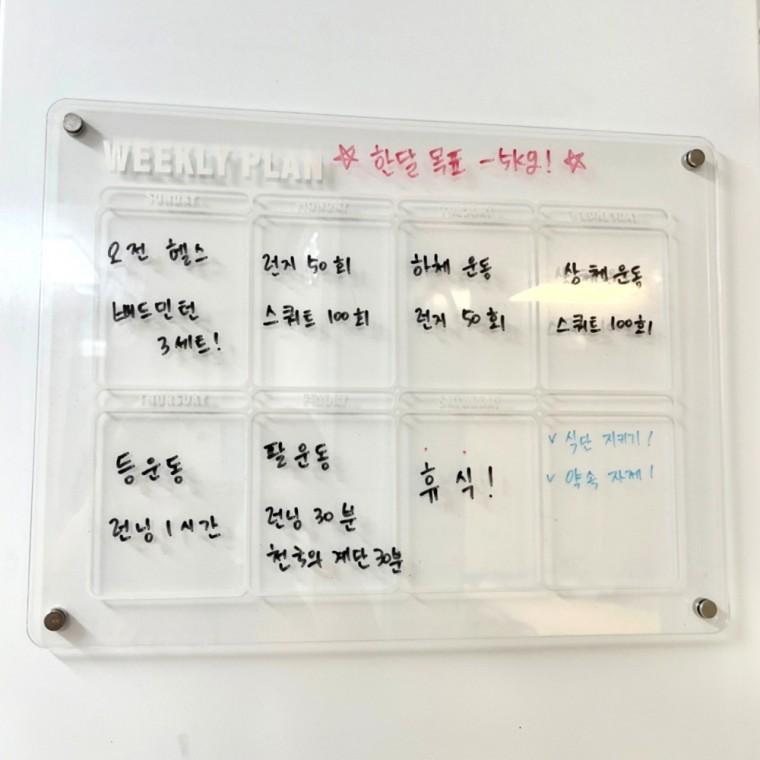 WEEKLY PLAN ☆ 한달 목표 -5kg! ☆
SUNDAY
오전 헬스
배드민턴
3세트!
MONDAY
런지 50회
스쿼트 100회
TUESDAY
하체 운동
런지 50회
WEDNESDAY
상체 운동
스쿼트 100회
THURSDAY
등운동
런닝 1시간
FRIDAY
팔 운동
런닝 30분
천국의 계단 30분
SATURDAY
휴식!
v 식단 지키기!
v 약속 자제!